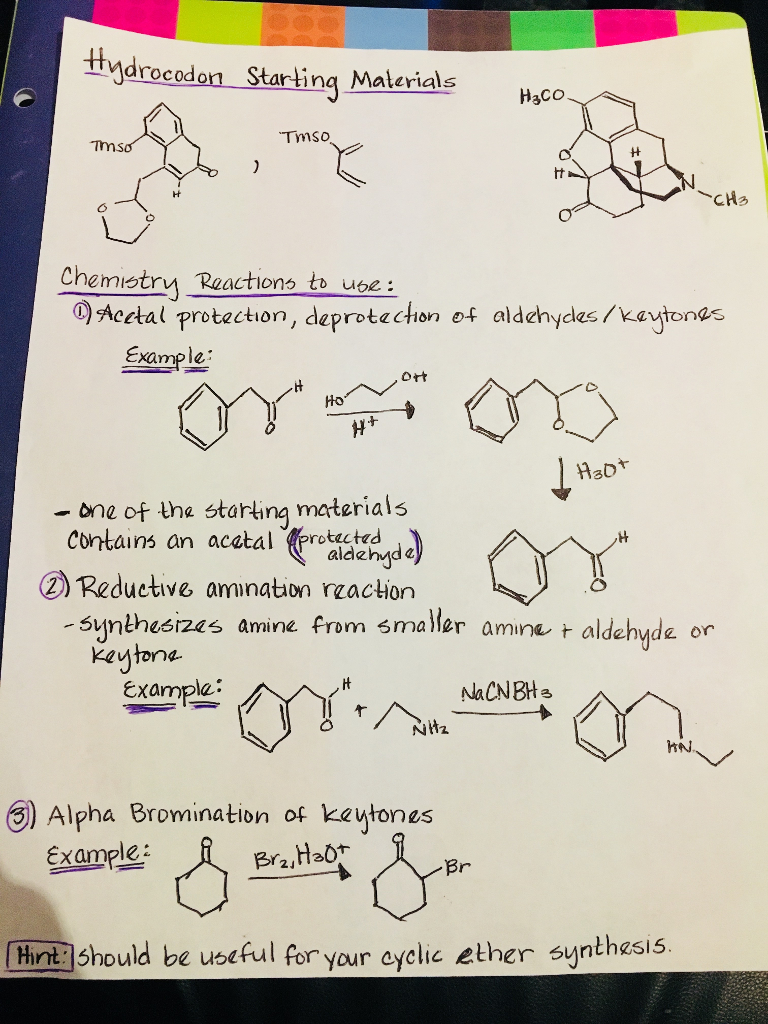 Hydrocodon Starting Materials
H3CO
TMSO
O
H
O
O
,
TMSO
O
H
H
O
N
CH3
Chemistry Reactions to use:
1) Acetal protection, deprotection of aldehydes/keytones
Example:
H
O
HO OH
H+
O
O
H3O+
- one of the starting materials
contains an acetal (protected
aldehyde)
H
O
2) Reductive amination reaction
- synthesizes amine from smaller amine + aldehyde or
keytone
Example:
H
O
+
NH2
NaCNBH3
HN
3) Alpha Bromination of keytones
Example:
O
Br2, H3O+
O
Br
Hint: should be useful for your cyclic ether synthesis.